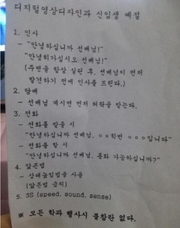 디지털영상디자인과 신입생 예절
1. 인사
- "안녕하십니까 선배님!"
"안녕히가십시오 선배님!"
(주변을 항상 살핀 후, 선배님이 먼저
발견하기 전에 인사를 드린다.)
2. 담배
- 선배님 계시면 먼저 허락을 받는다.
3. 전화
- 전화를 받을 시
"안녕하십니까 선배님, ××학번 ×××입니다"
- 전화를 할 시
"안녕하십니까 선배님, 통화 가능하십니까?"
4. 압존법
- 상대높임법을 사용
(압존법 금지)
5. 3S (speed, sound, sense)
※ 모든 학과 행사시 불참란 없다.